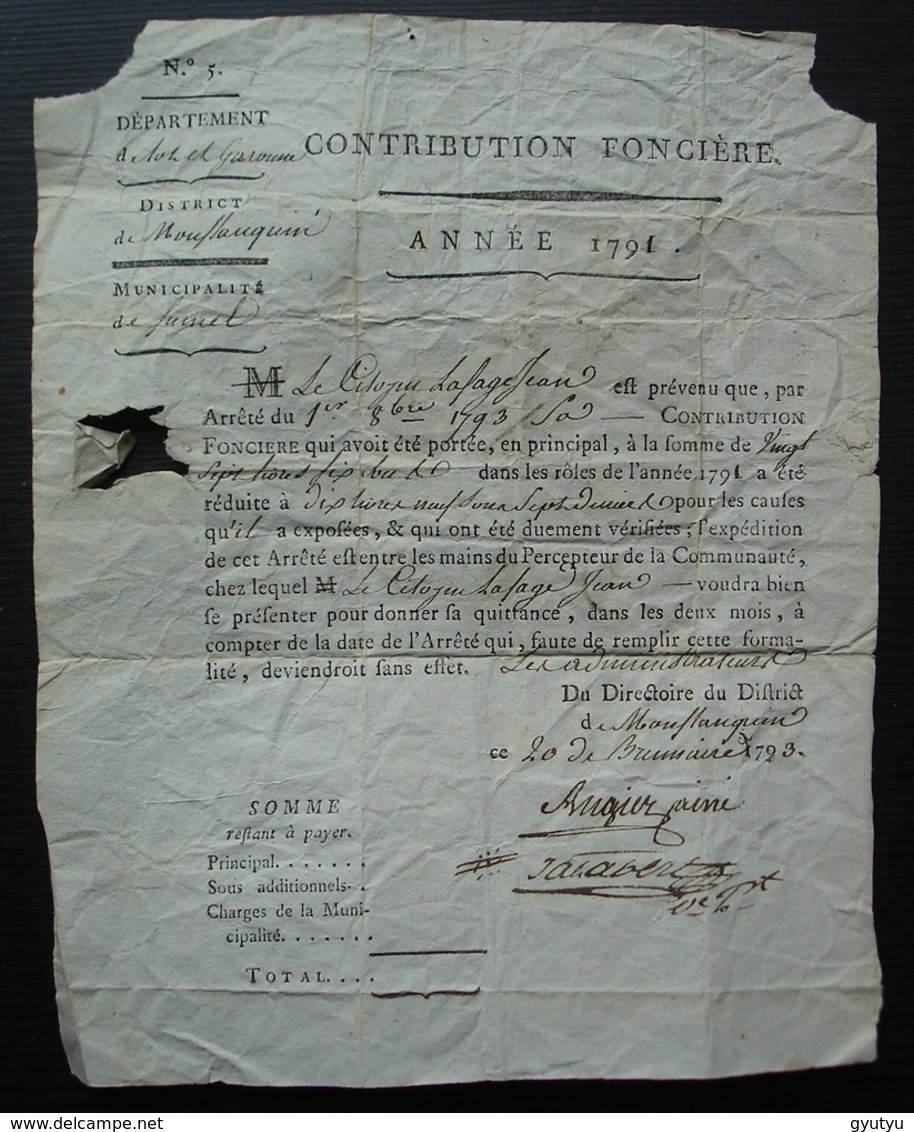 N.º 5.
DÉPARTEMENT
de Lot et Garonne
CONTRIBUTION FONCIÈRE.
DISTRICT
de Monflanquin
ANNÉE 1791.
MUNICIPALITÉ
de fumel
M Le Citoyen Lafage Jean est prévenu que, par
Arrêté du 1er 8bre 1793 Sa CONTRIBUTION
FONCIERE qui avoit été portée, en principal, à la somme de Vingt
Sept livres six sous dans les rôles de l'année 1791 a été
réduite à dix livres neuf sous Sept deniers pour les causes
qu'il a exposées, & qui ont été duement vérifiées; l'expédition
de cet Arrêté est entre les mains du Percepteur de la Communauté,
chez lequel M Le Citoyen Lafage Jean — voudra bien
se présenter pour donner sa quittance, dans les deux mois, à
compter de la date de l'Arrêté qui, faute de remplir cette forma-
lité, deviendroit sans effet. Les administrateurs
Du Directoire du District
de Monflanquin
ce 20 de Brumaire 1793.
SOMME
restant à payer.
Principal.......
Sous additionnels..
Charges de la Muni-
cipalité.......
TOTAL....
Augier ainé
Talabert
gyutyu